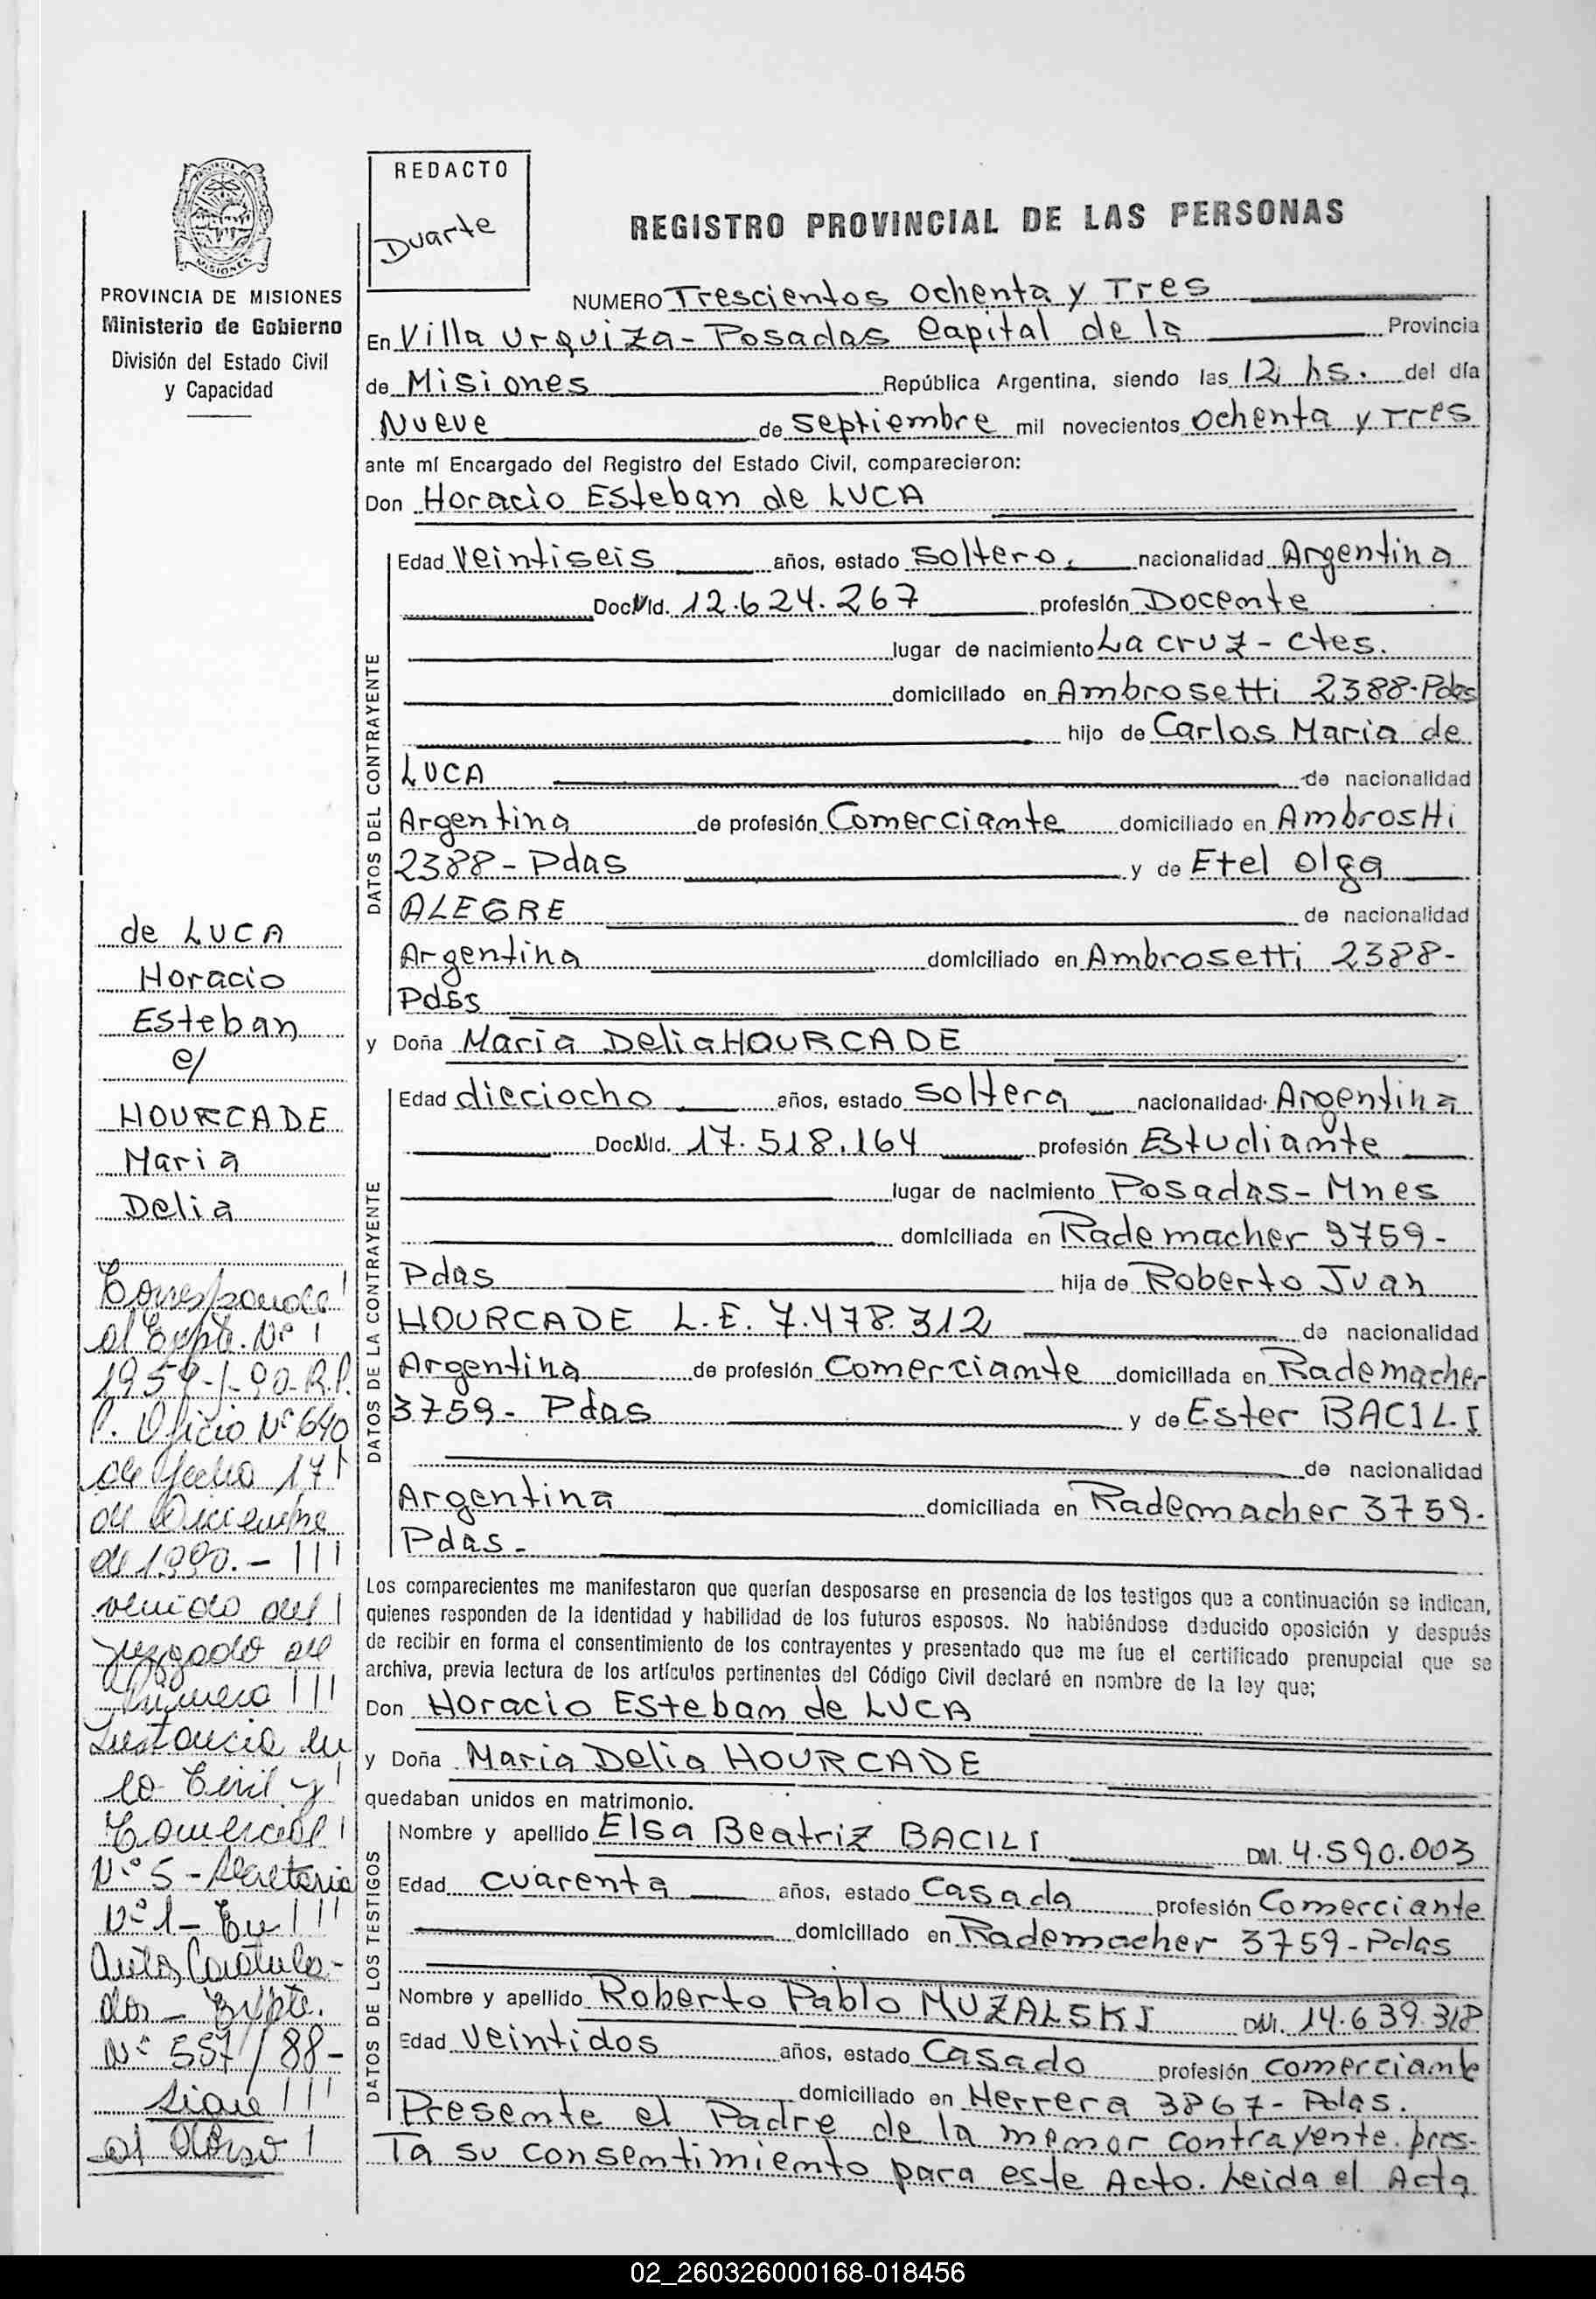 REDACTO
Duarte
MISIONES
PROVINCIA DE MISIONES
Ministerio de Gobierno
División del Estado Civil
y Capacidad
REGISTRO PROVINCIAL DE LAS PERSONAS
NUMERO Trescientos ochenta y Tres
En Villa Urquiza - Posadas Capital de la Provincia
de Misiones República Argentina, siendo las 12 hs. del día
Nueve de septiembre mil novecientos ochenta y Tres
ante mí Encargado del Registro del Estado Civil, comparecieron:
Don Horacio Esteban de LUCA
DATOS DEL CONTRAYENTE
Edad Veintiseis años, estado soltero, nacionalidad Argentina
Doc NId. 12.624.267 profesión Docente
lugar de nacimiento La cruz - ctes.
domiciliado en Ambrosetti 2388-Pdas
hijo de Carlos Maria de
LUCA de nacionalidad
Argentina de profesión Comerciante domiciliado en Ambrostti
2388 - Pdas y de Etel Olga
ALEGRE de nacionalidad
Argentina domiciliado en Ambrosetti 2388-
Pdas
y Doña Maria Delia HOURCADE
DATOS DE LA CONTRAYENTE
Edad dieciocho años, estado soltera nacionalidad Argentina
Doc NId. 17.518.164 profesión Estudiante
lugar de nacimiento Posadas - Mnes
domiciliada en Rademacher 3759-
Pdas hija de Roberto Juan
HOURCADE L.E. 7.478.312 de nacionalidad
Argentina de profesión Comerciante domiciliada en Rademacher
3759- Pdas y de Ester BACILI
de nacionalidad
Argentina domiciliada en Rademacher 3759-
Pdas-
Los comparecientes me manifestaron que querían desposarse en presencia de los testigos que a continuación se indican,
quienes responden de la identidad y habilidad de los futuros esposos. No habiéndose deducido oposición y después
de recibir en forma el consentimiento de los contrayentes y presentado que me fue el certificado prenupcial que se
archiva, previa lectura de los artículos pertinentes del Código Civil declaré en nombre de la ley que;
Don Horacio Esteban de LUCA
y Doña Maria Delia HOURCADE
quedaban unidos en matrimonio.
DATOS DE LOS TESTIGOS
Nombre y apellido Elsa Beatriz BACILI DNI. 4.590.003
Edad cuarenta años, estado Casada profesión Comerciante
domiciliado en Rademacher 3759-Pdas
Nombre y apellido Roberto Pablo MUZALSKI DNI. 14.639.318
Edad Veintidos años, estado Casado profesión comerciante
domiciliado en Herrera 3867- Pdas.
Presente el Padre de la menor contrayente. pres-
Ta su consentimiento para este Acto. Leida el Acta
de LUCA
Horacio
Esteban
c/
HOURCADE
Maria
Delia
Corresponde
al Expte. Nº
1957-/-90-R.P.
P. Oficio Nº 640
de fecha 17
de Diciembre
de 1990.-
venido del
juzgado de
Primera
Instancia en
lo Civil y
Comercial
Nº 5 - Secretaria
Nº 1 - En
Autos Caratula-
dos - Expte.
Nº 557/88-
Sigue
al Dorso
02_260326000168-018456